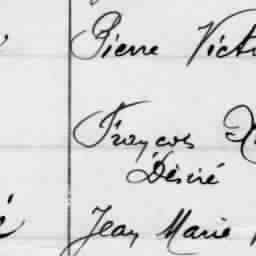 Pierre Vict
François X
Désiré
Jean Marie